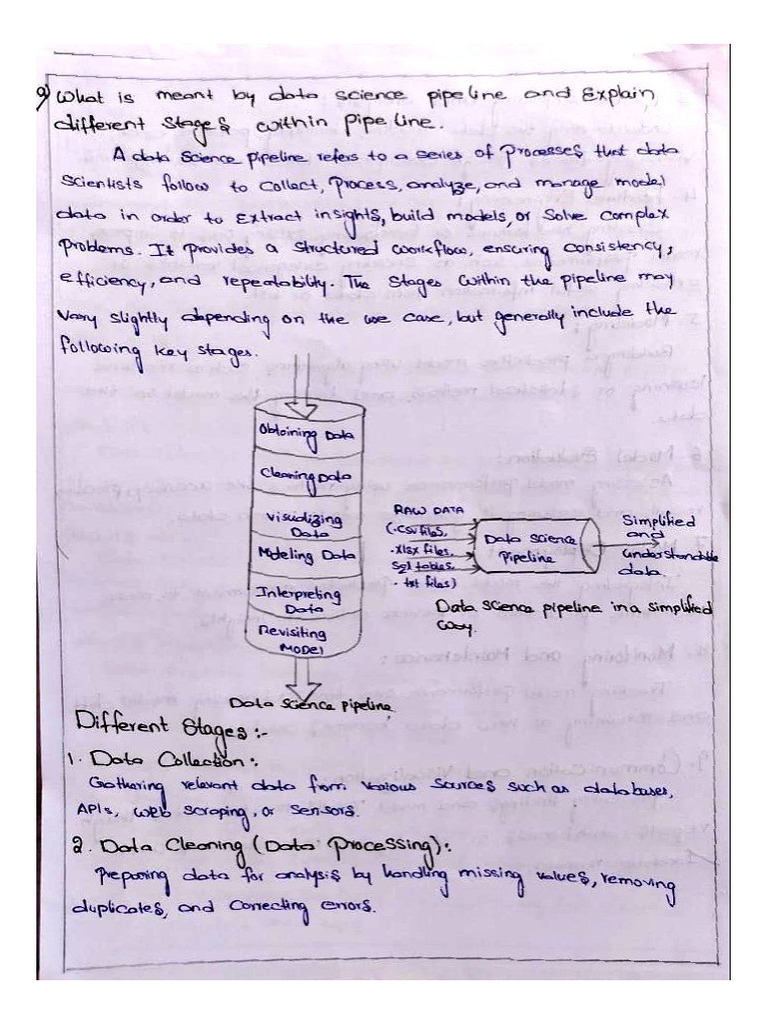 9) What is meant by data science pipeline and Explain
different stages within pipeline.
A data science pipeline refers to a series of processes that data
scientists follow to collect, process, analyze, and manage model
data in order to extract insights, build models, or solve complex
problems. It provides a structured workflow, ensuring consistency,
efficiency, and repeatability. The stages within the pipeline may
vary slightly depending on the use case, but generally include the
following key stages.
Obtaining Data
Cleaning Data
Visualizing
Data
Modeling Data
Interpreting
Data
Revisiting
MODEL
Data science pipeline
RAW DATA
(.csv files,
.xlsx files,
sql tables,
.txt files)
Data science
pipeline
Simplified
and
understandable
data
Data science pipeline in a simplified
way.
Different stages :-
1. Data Collection :
Gathering relevant data from various sources such as databases,
APIs, web scraping, or sensors.
2. Data Cleaning (Data Processing) :
Preparing data for analysis by handling missing values, removing
duplicates, and correcting errors.